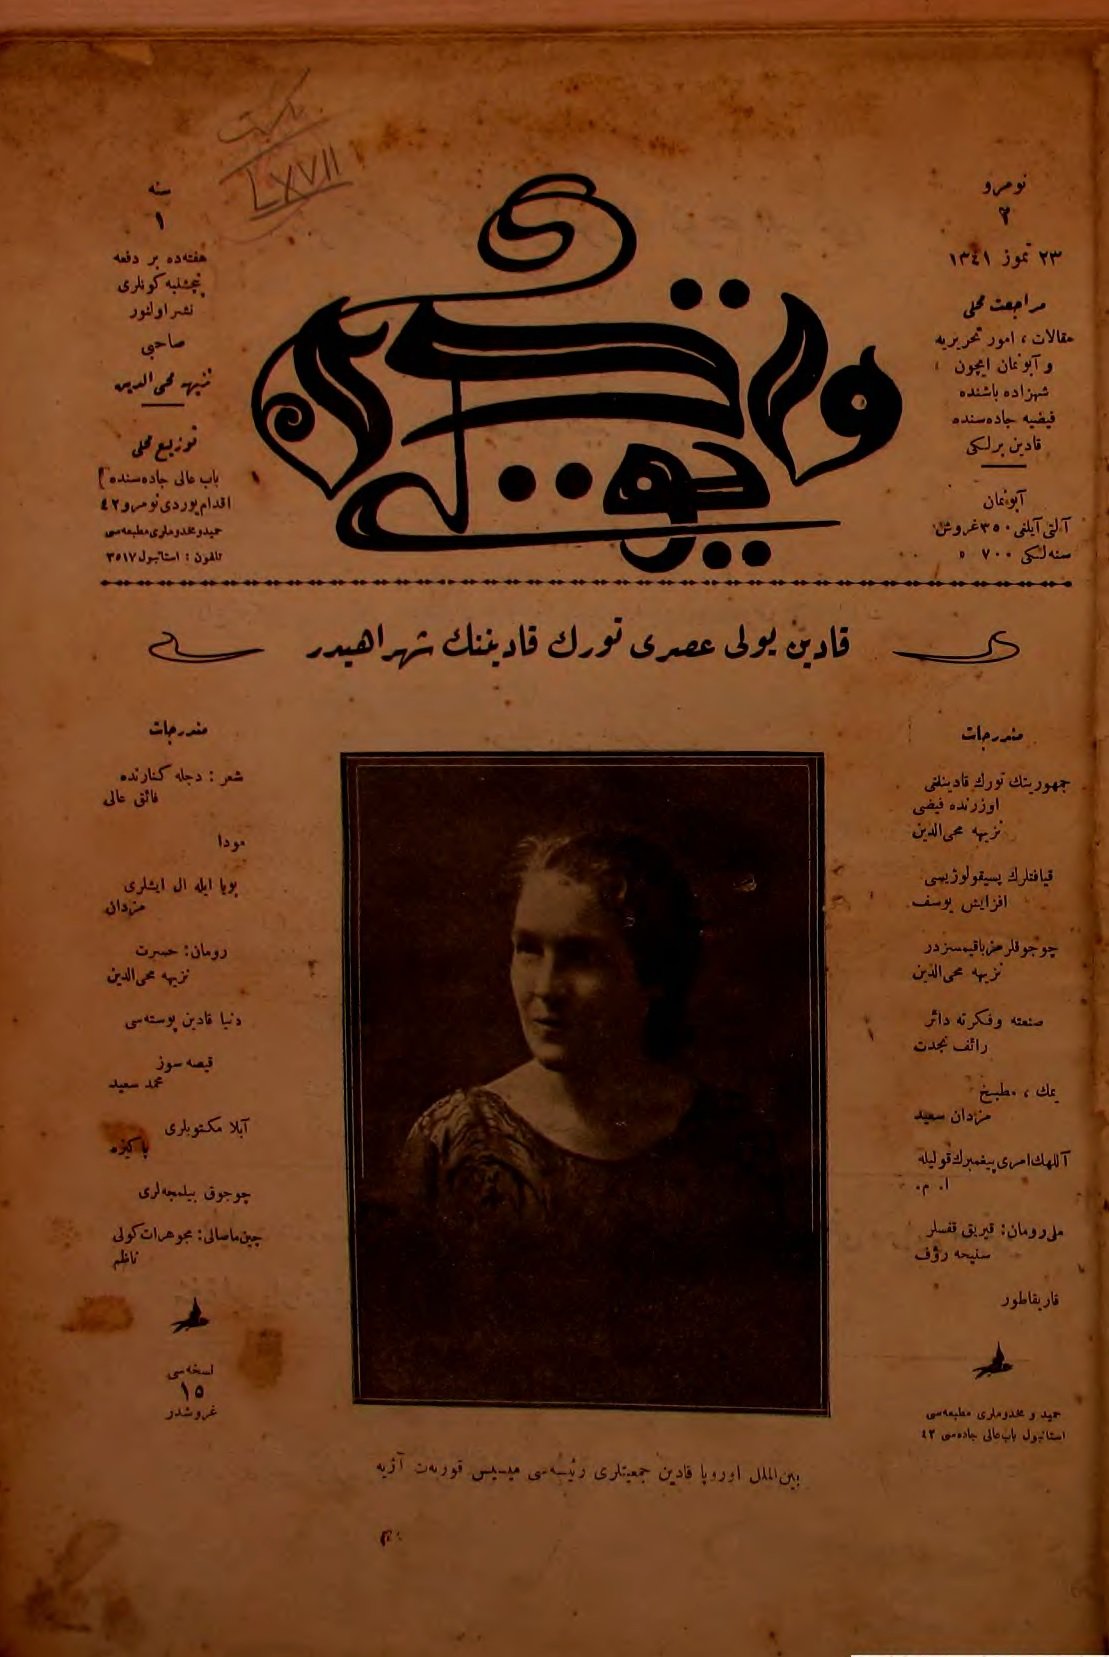 نومرو
٢
٢٣ تموز ١٣٤١
مراجعت محلی
مقالات ، امور تحریریه
و آبونمان ایچون
شهزاده باشنده
فیضیه جاده‌سنده
قادین برلکی
آبونمان
آلتی آیلغی ٣٥٠ غروش
سنه‌لکی ٧٠٠ »
LXVII
قادین یولی
سنه
١
هفته‌ده بر دفعه
پنچشنبه کونلری
نشر اولنور
صاحبی
نزیهه محی‌الدین
توزیع محلی
باب عالی جاده‌سنده
اقدام یوردی نومرو ٤٢
حمید و مخدوملری مطبعه‌سی
تلفون : استانبول ٣٥١٧
قادین یولی عصری تورك قادیننك شهراهیدر
مندرجات
جمهوریتك تورك قادینلغی
اوزرنده فیضی
نزیهه محی‌الدین
قیافتلرك پسیقولوژیسی
افزایش یوسف
چوجوقلرمز باقیمسزدر
نزیهه محی‌الدین
صنعته وفکرته دائر
رائف نجدت
یمك ، مطبخ
مزدان سعید
آللهك امری پیغمبرك قولیله
ا. م.
ملی رومان: قیریق قفسلر
سنیحه رؤف
قاریقاطور
حمید و مخدوملری مطبعه‌سی
استانبول باب‌عالی جاده‌سی ٤٢
مندرجات
شعر : دجله کنارنده
فائق عالی
مودا
بویا ایله ال ایشلری
مزدان
رومان: حسرت
نزیهه محی‌الدین
دنیا قادین پوسته‌سی
قیصه سوز
محمد سعید
آبلا مکتوبلری
پاکیزه
چوجوق بیلمجه‌لری
چین ماصالی: مجوهرات کولی
ناظم
نسخه‌سی
١٥
غروشدر
بین‌الملل اوروپا قادین جمعیتلری رئیسه‌سی میسیس قوربه‌ت آژبه